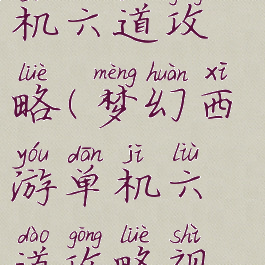 机六道攻
lüè mèng huàn xī
略(梦幻西
yóu dān jī liù
游单机六
dào gōng lüè shì
道攻略视